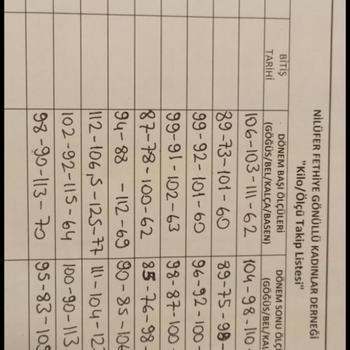 NİLÜFER FETHİYE GÖNÜLLÜ KADINLAR DERNEĞİ
"Kilo/Ölçü Takip Listesi"
BİTİŞ TARİHİ
DÖNEM BAŞI ÖLÇÜLERİ
(GÖĞÜS/BEL/KALÇA/BASEN)
DÖNEM SONU ÖLÇ
(GÖĞÜS/BEL/KAL
106-103-111-62 104-98-110-
89-73-101-60 89-75-98-
99-92-101-60 96-92-100-
99-91-102-63 98-87-100
87-78-100-62 85-76-98-
94-88 -112-69 90-85-106
112-106,5-125-77 111-104-12
102-92-115-64 100-90-113
98-90-113-70 95-83-10